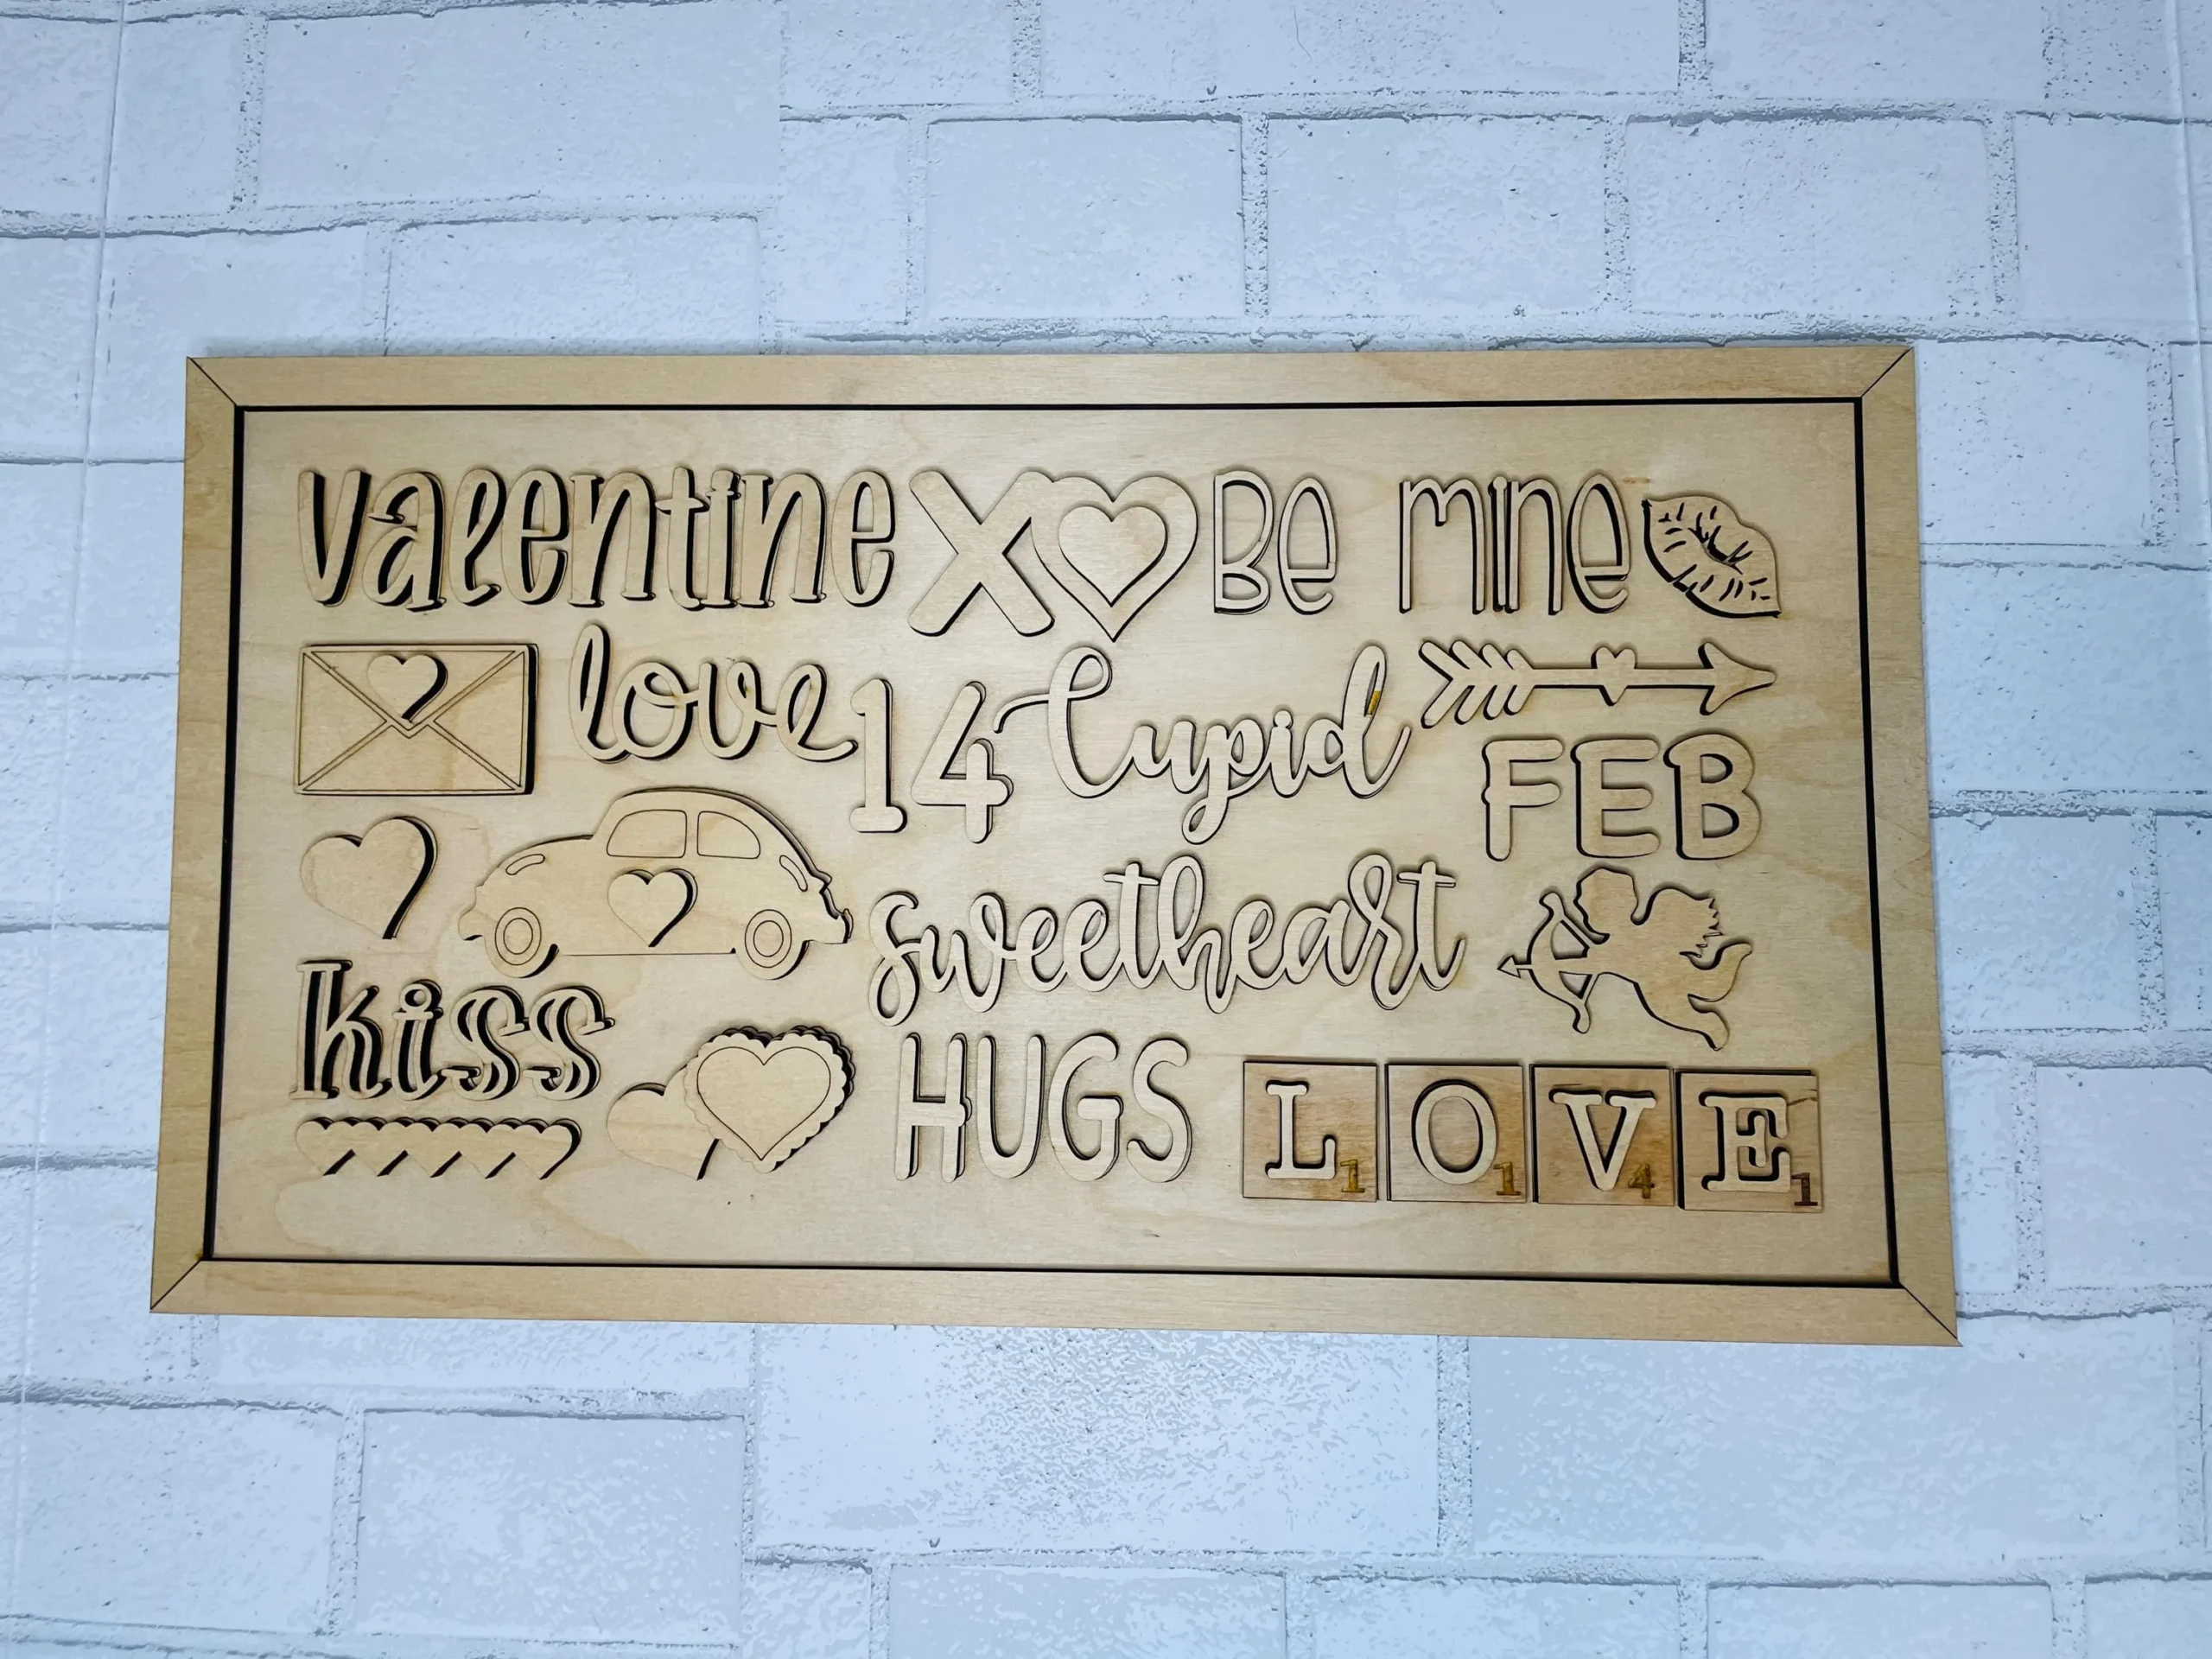 valentine X Be mine
love 14 Cupid
FEB
sweetheart
kiss
HUGS L1 O1 V4 E1